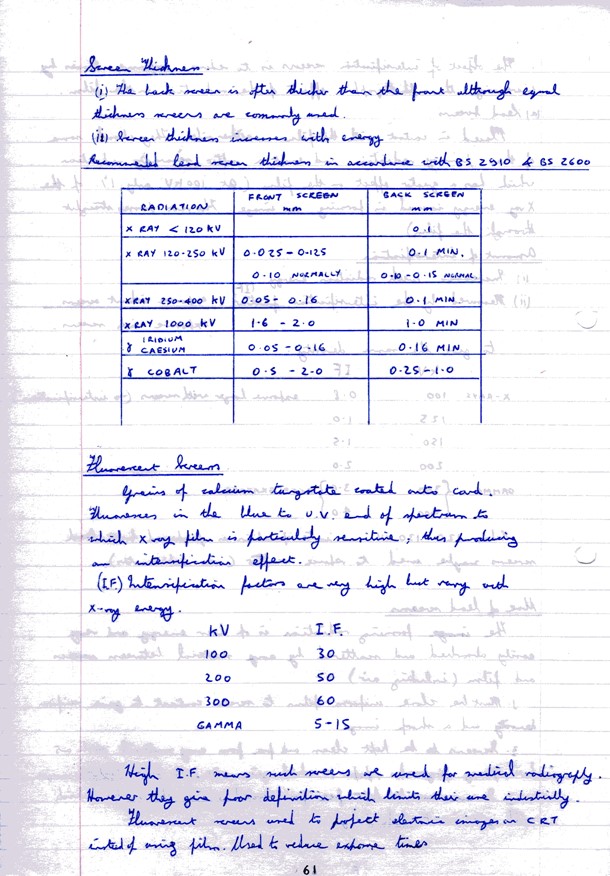 Screen Thickness.
(i) The back screen is often thicker than the front although equal
thickness screens are commonly used.
(ii) Screen thickness increases with energy
Recommended lead screen thickness in accordance with BS 2910 & BS 2600
RADIATION FRONT SCREEN mm BACK SCREEN mm
X RAY < 120 KV 0.1
X RAY 120-250 KV 0.025 - 0.125 0.1 MIN.
0.10 NORMALLY 0.10 - 0.15 NORMAL
X RAY 250-400 KV 0.05 - 0.16 0.1 MIN
X RAY 1000 KV 1.6 - 2.0 1.0 MIN
γ IRIDIUM
CAESIUM 0.05 - 0.16 0.16 MIN
γ COBALT 0.5 - 2.0 0.25 - 1.0
Fluorescent Screens
Grains of calcium tungstate coated onto card.
Fluoresces in the blue to U.V. end of spectrum to
which X ray film is particularly sensitive, thus producing
an intensification effect.
(I.F.) Intensification factors are very high but vary with
X-ray energy.
KV I.F.
100 30
200 50
300 60
GAMMA 5-15
High I.F. means such screens are used for medical radiography.
However they give poor definition which limits their use industrially.
Fluorescent screens used to project electronic images on CRT
instead of using film. Used to reduce exposure times
61